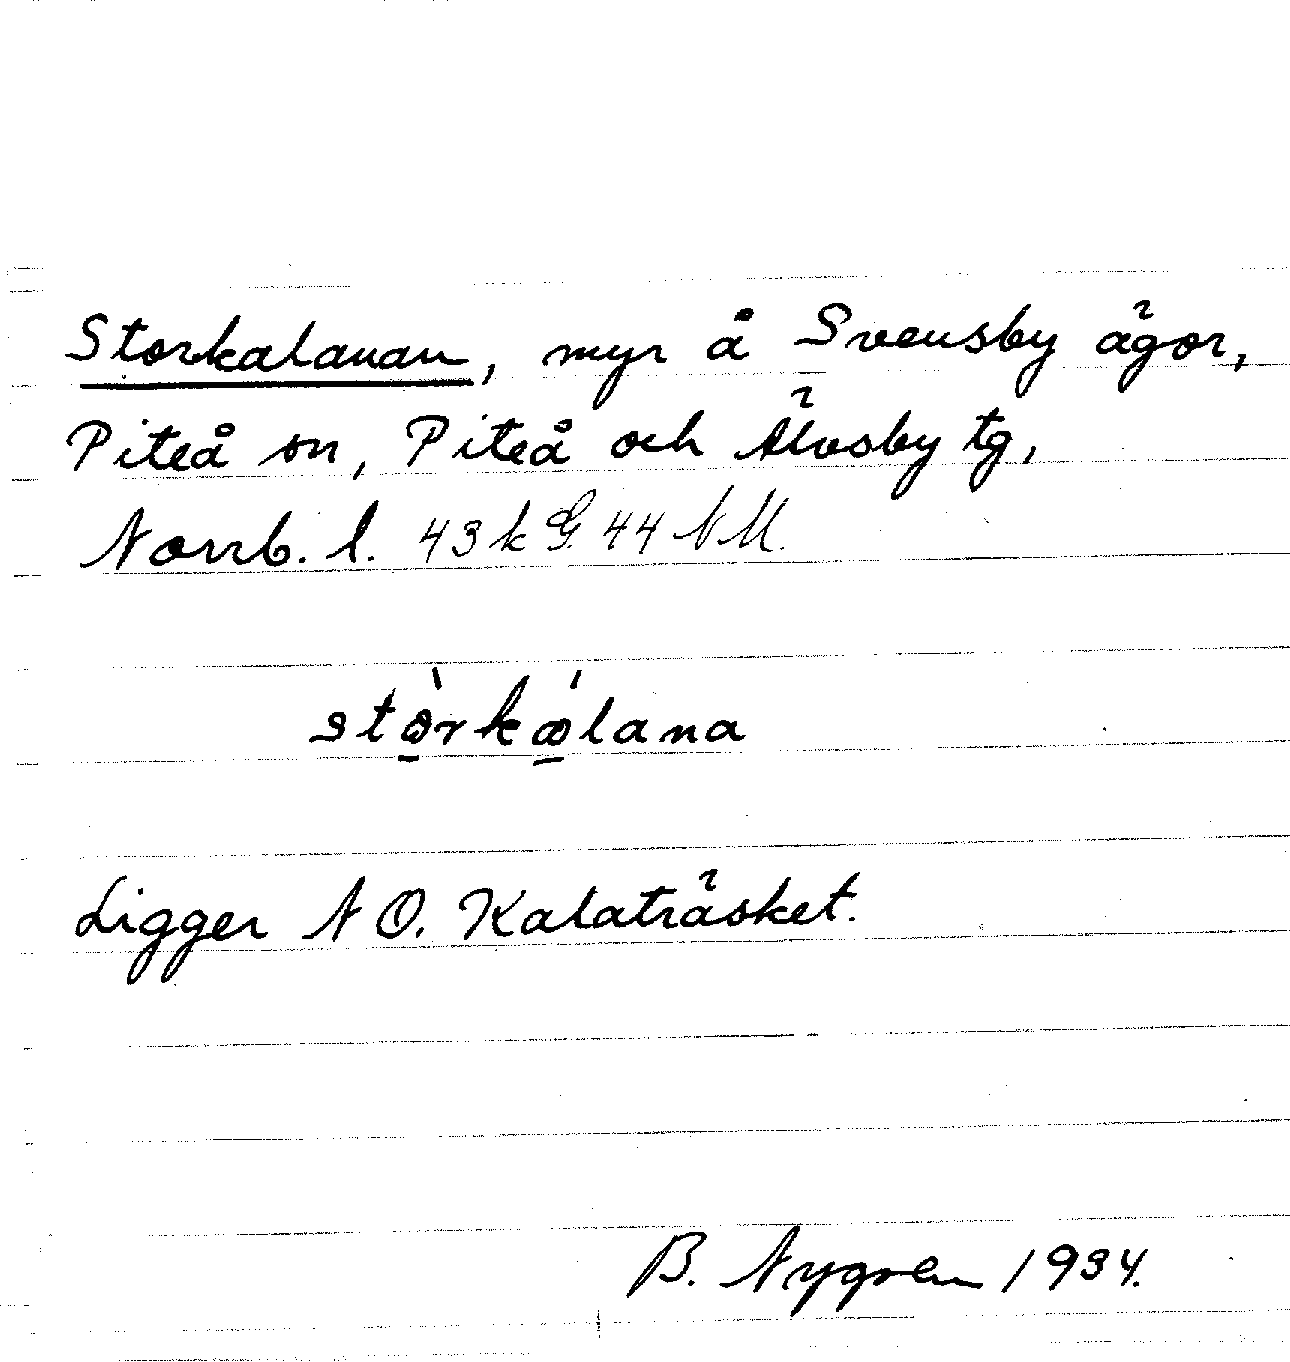 Storkalanan, myr å Svensby ägor,
Piteå sn, Piteå och Älvsby tg,
Norrb. l. 43 k G. 44 N M.
stòrkálana
Ligger N O. Kalaträsket.
B. Nygren 1934.